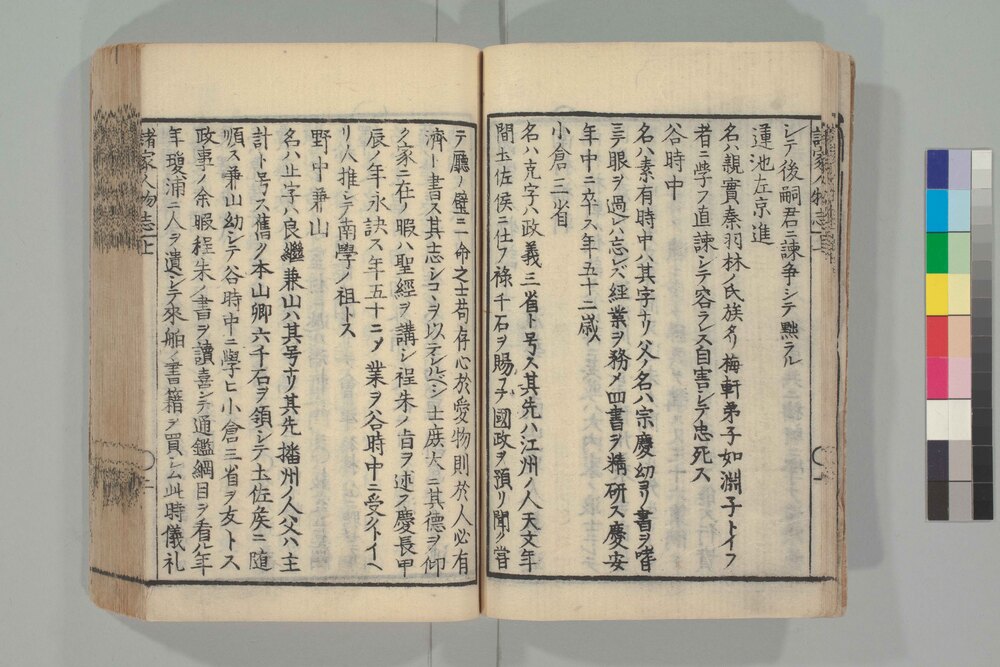 シテ後嗣君ニ諫争シテ黜ラル
蓮池左京進
名ハ親實秦羽林ノ氏族ナリ梅軒弟子如淵子トイフ
者ニ學フ直諫シテ容ラレス自害シテ忠死ス
谷時中
名ハ素有時中ハ其字ナリ父ノ名ハ宗慶幼ヨリ書ヲ嗜
ミテ眼ヲ過レハ忘レズ經業ヲ務メ四書ヲ精研ス慶安
年中ニ卒ス年五十二歳
小倉三省
名ハ克字ハ政義三省ト号ス其先ハ江州ノ人天文年
間土佐侯ニ仕フ祿千石ヲ賜フテ國政ヲ預リ聞ク甞
テ廳ノ璧ニ一命之士苟存心於愛物則於人必有
濟ト書ス其志シコヽヲ以テシルベシ士庶大ニ其德ヲ仰
ク家ニ在ノ暇ハ聖經ヲ講シ程朱ノ旨ヲ述ス慶長甲
辰ノ年永訣ス年五十ニメ業ヲ谷時中ニ受クトイヘ
リ人推シテ南學ノ祖トス
野中兼山
名ハ止字ハ良繼兼山ハ其号ナリ其先播州ノ人父ハ主
計ト号ス舊ク本山卿六千石ヲ領シテ土佐侯ニ随
順ス兼山幼シテ谷時中ニ學ヒ小倉三省ヲ友トス
政事ノ余暇程朱ノ書ヲ讀喜シテ通鑑綱目ヲ看ル年
年瓊浦ニ人ヲ遺シテ來舶ノ書籍ヲ買シム此時儀礼
諸家人物志上